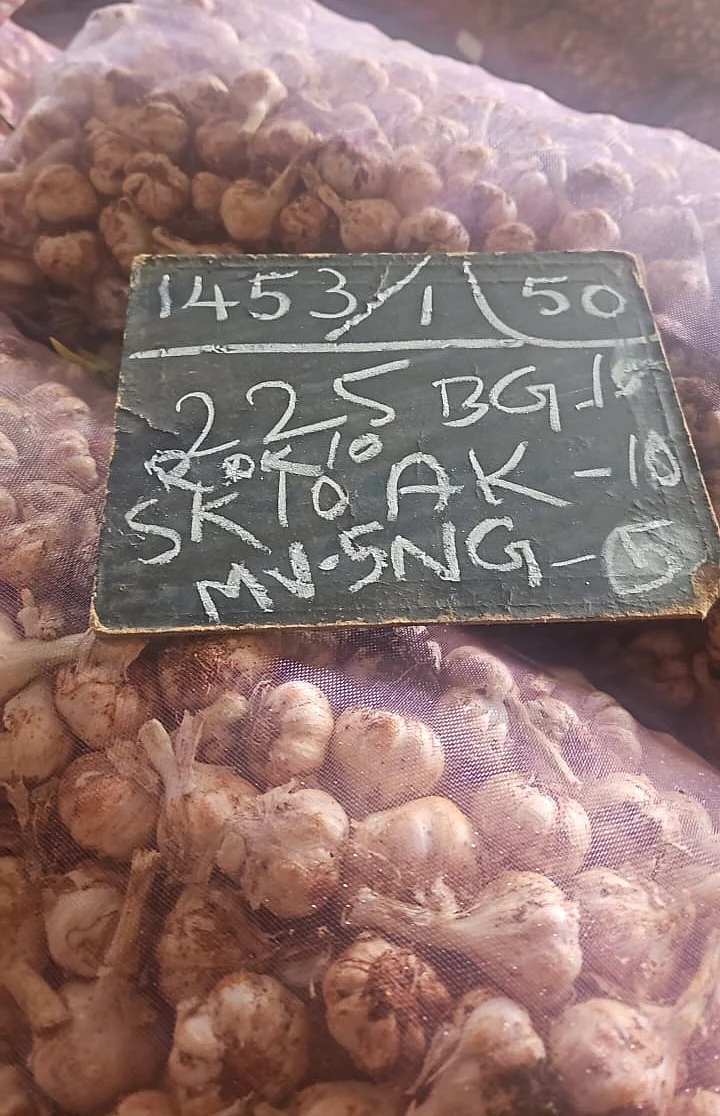 1453/1 50
225 BG-
RDK 10
SK 10 AK-10
MV-5 NG-5